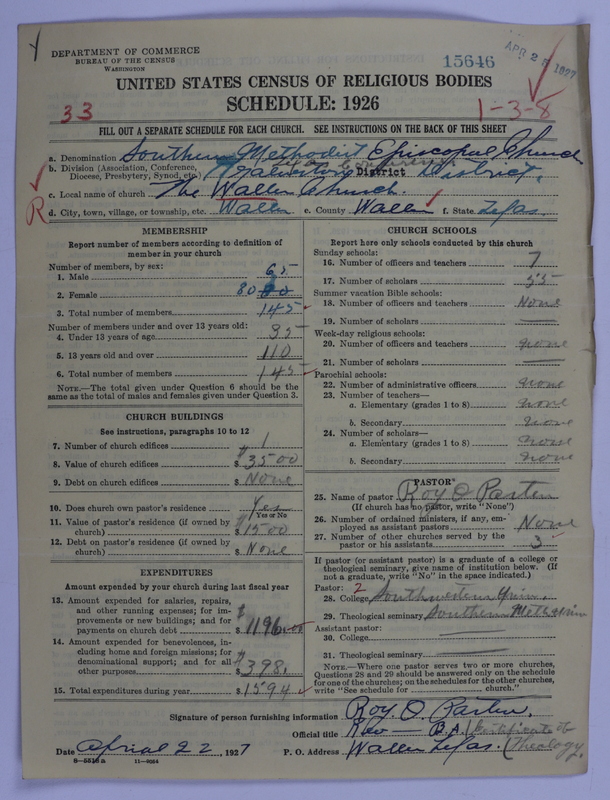 DEPARTMENT OF COMMERCE
BUREAU OF THE CENSUS
WASHINGTON
15646
APR 2 1927
UNITED STATES CENSUS OF RELIGIOUS BODIES
SCHEDULE: 1926
33
1-3-8
FILL OUT A SEPARATE SCHEDULE FOR EACH CHURCH. SEE INSTRUCTIONS ON THE BACK OF THIS SHEET
a. Denomination Southern Methodist Episcopal Church
b. Division (Association, Conference, Diocese, Presbytery, Synod, etc.) Galveston District District.
c. Local name of church The Waller Church.
R
d. City, town, village, or township, etc. Waller e. County Waller f. State Texas.
MEMBERSHIP
Report number of members according to definition of member in your church
Number of members, by sex:
1. Male 65
2. Female 80
3. Total number of members 145
Number of members under and over 13 years old:
4. Under 13 years of age 35
5. 13 years old and over 110
6. Total number of members 145
NOTE.—The total given under Question 6 should be the same as the total of males and females given under Question 3.
CHURCH BUILDINGS
See instructions, paragraphs 10 to 12
7. Number of church edifices 1
8. Value of church edifices $ 3500
9. Debt on church edifices $ None
10. Does church own pastor's residence Yes
Yes or No
11. Value of pastor's residence (if owned by church) $ 1500
12. Debt on pastor's residence (if owned by church) $ None
EXPENDITURES
Amount expended by your church during last fiscal year
13. Amount expended for salaries, repairs, and other running expenses; for improvements or new buildings; and for payments on church debt $ 1196.00
14. Amount expended for benevolences, including home and foreign missions; for denominational support; and for all other purposes $ 398.
15. Total expenditures during year $ 1594
CHURCH SCHOOLS
Report here only schools conducted by this church
Sunday schools:
16. Number of officers and teachers 7
17. Number of scholars 55
Summer vacation Bible schools:
18. Number of officers and teachers None
19. Number of scholars
Week-day religious schools:
20. Number of officers and teachers none
21. Number of scholars
Parochial schools:
22. Number of administrative officers none
23. Number of teachers—
a. Elementary (grades 1 to 8) none
b. Secondary none
24. Number of scholars—
a. Elementary (grades 1 to 8) none
b. Secondary none
PASTOR
25. Name of pastor Roy O Parten
(If church has no pastor, write "None")
26. Number of ordained ministers, if any, employed as assistant pastors None
27. Number of other churches served by the pastor or his assistants 3
If pastor (or assistant pastor) is a graduate of a college or theological seminary, give name of institution below. (If not a graduate, write "No" in the space indicated.)
Pastor: 2
28. College Southwestern Univ.
29. Theological seminary Southern Meth. Univ
Assistant pastor:
30. College
31. Theological seminary
NOTE.—Where one pastor serves two or more churches, Questions 28 and 29 should be answered only on the schedule for one of the churches; on the schedules for the other churches, write "See schedule for church."
Signature of person furnishing information Roy O. Parten.
Official title Rev — B.A. (Certificate of Theology.
Date April 22, 1927 P. O. Address Waller Texas.
8—5518a 11—9064